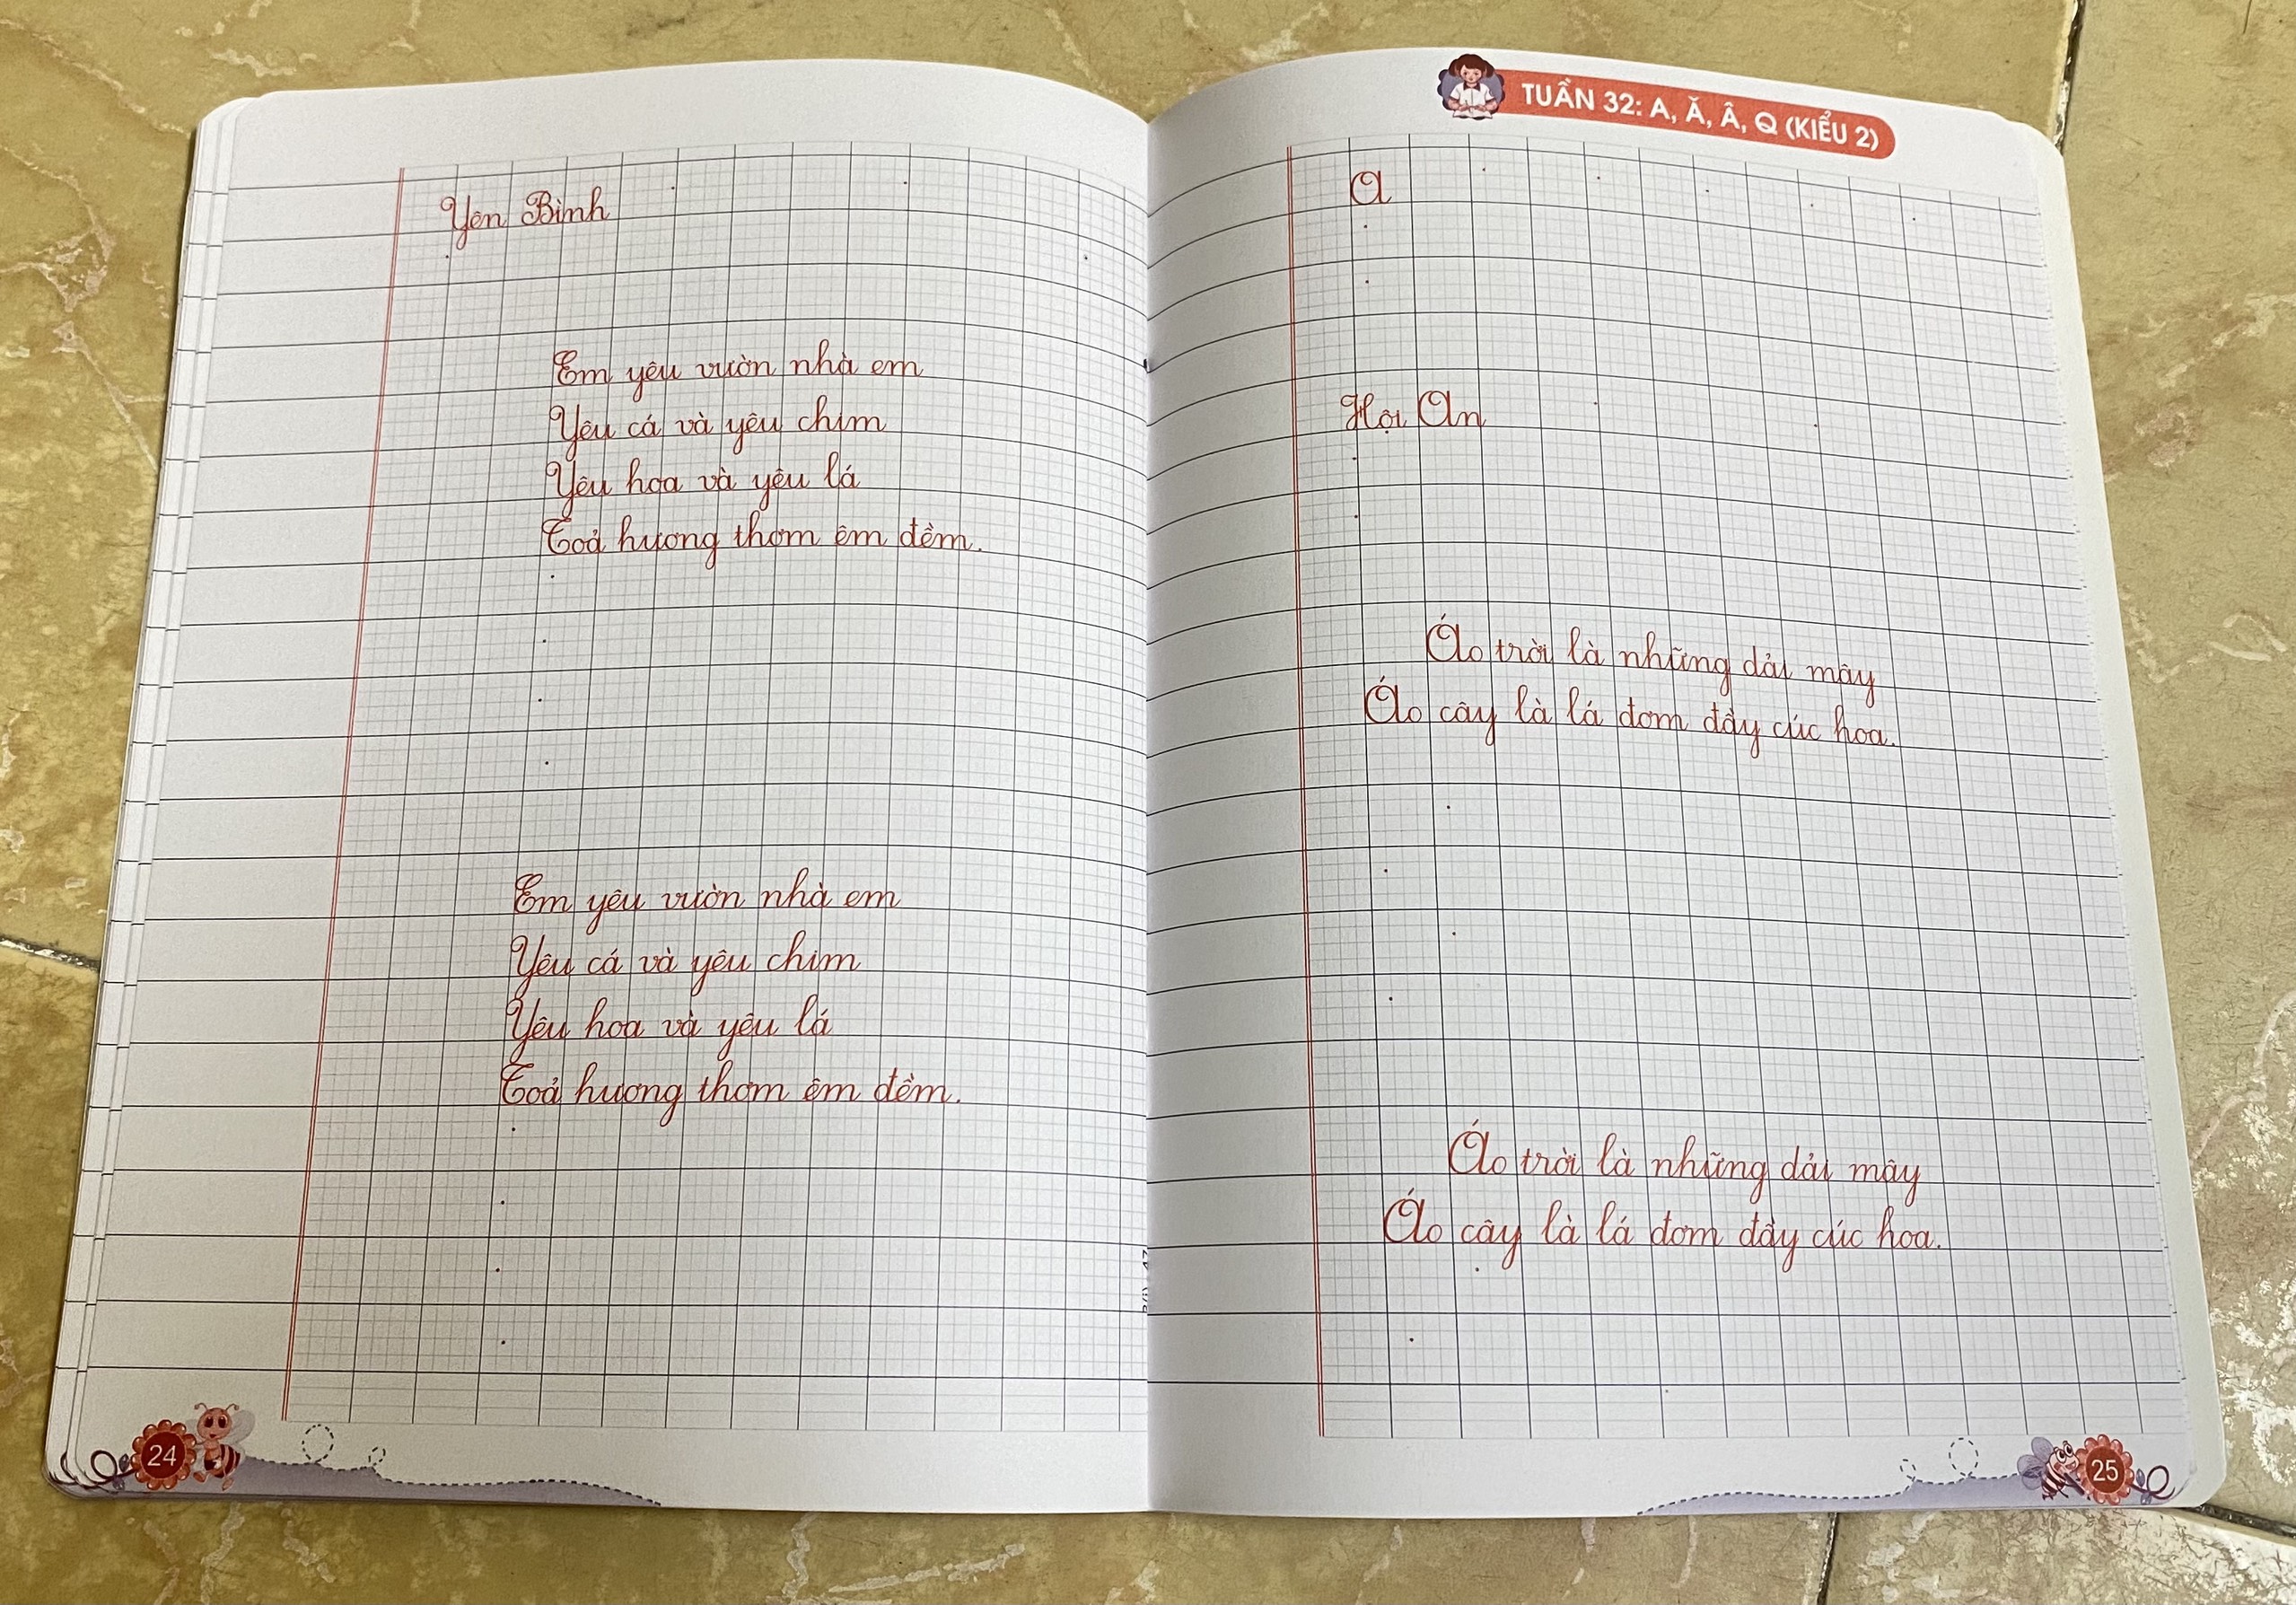 Yên Bình
Em yêu vườn nhà em
Yêu cá và yêu chim
Yêu hoa và yêu lá
Toả hương thơm êm đềm.
Em yêu vườn nhà em
Yêu cá và yêu chim
Yêu hoa và yêu lá
Toả hương thơm êm đềm.
24
TUẦN 32: A, Ă, Â, Q (KIỂU 2)
A
Hội An
Áo trời là những dải mây
Áo cây là lá đơm đầy cúc hoa.
Áo trời là những dải mây
Áo cây là lá đơm đầy cúc hoa.
25